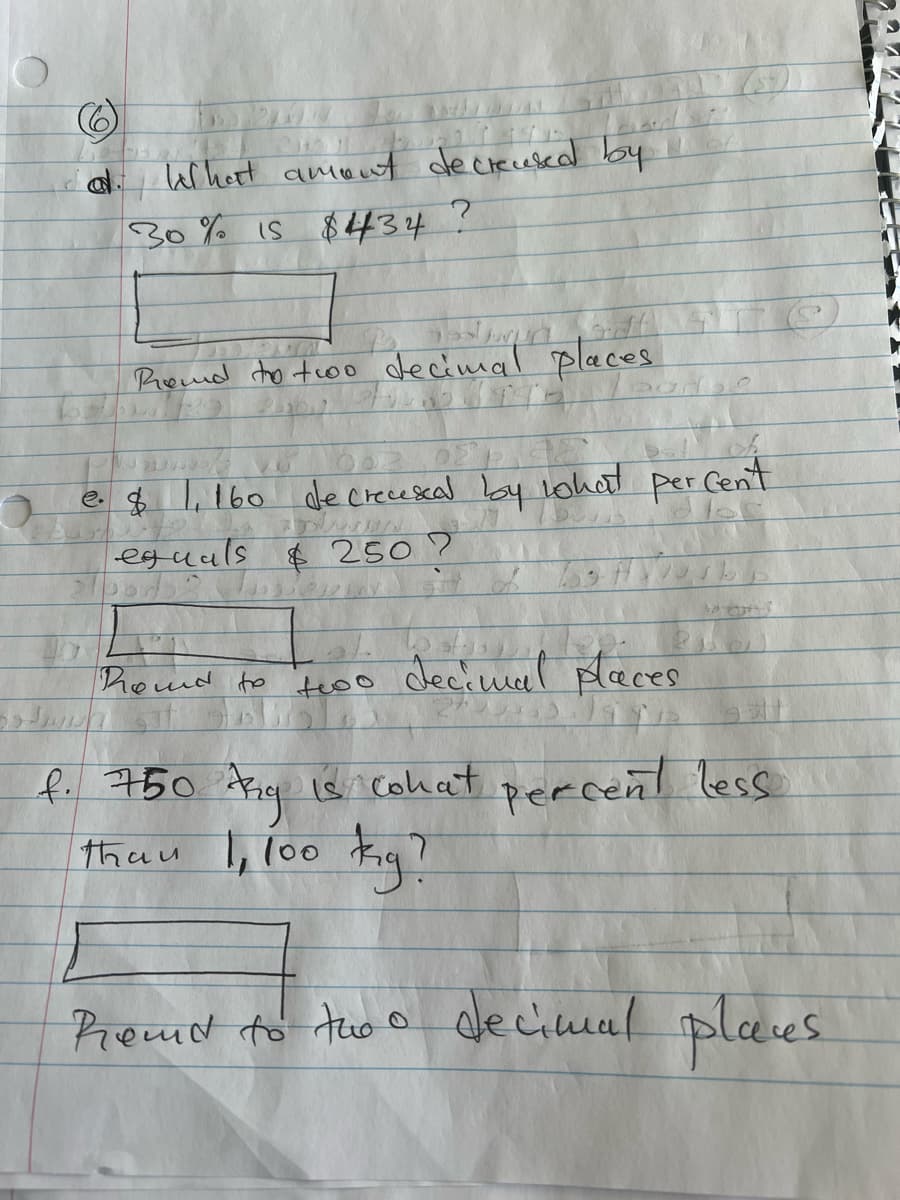 6
d. What amount decreased by
30% is $434?
Round to two decimal places
e. $1,160 decreased by what percent
equals $250?
Round to two decimal places
f. 750 kg is what percent less
than 1,100 kg?
Round to two decimal places